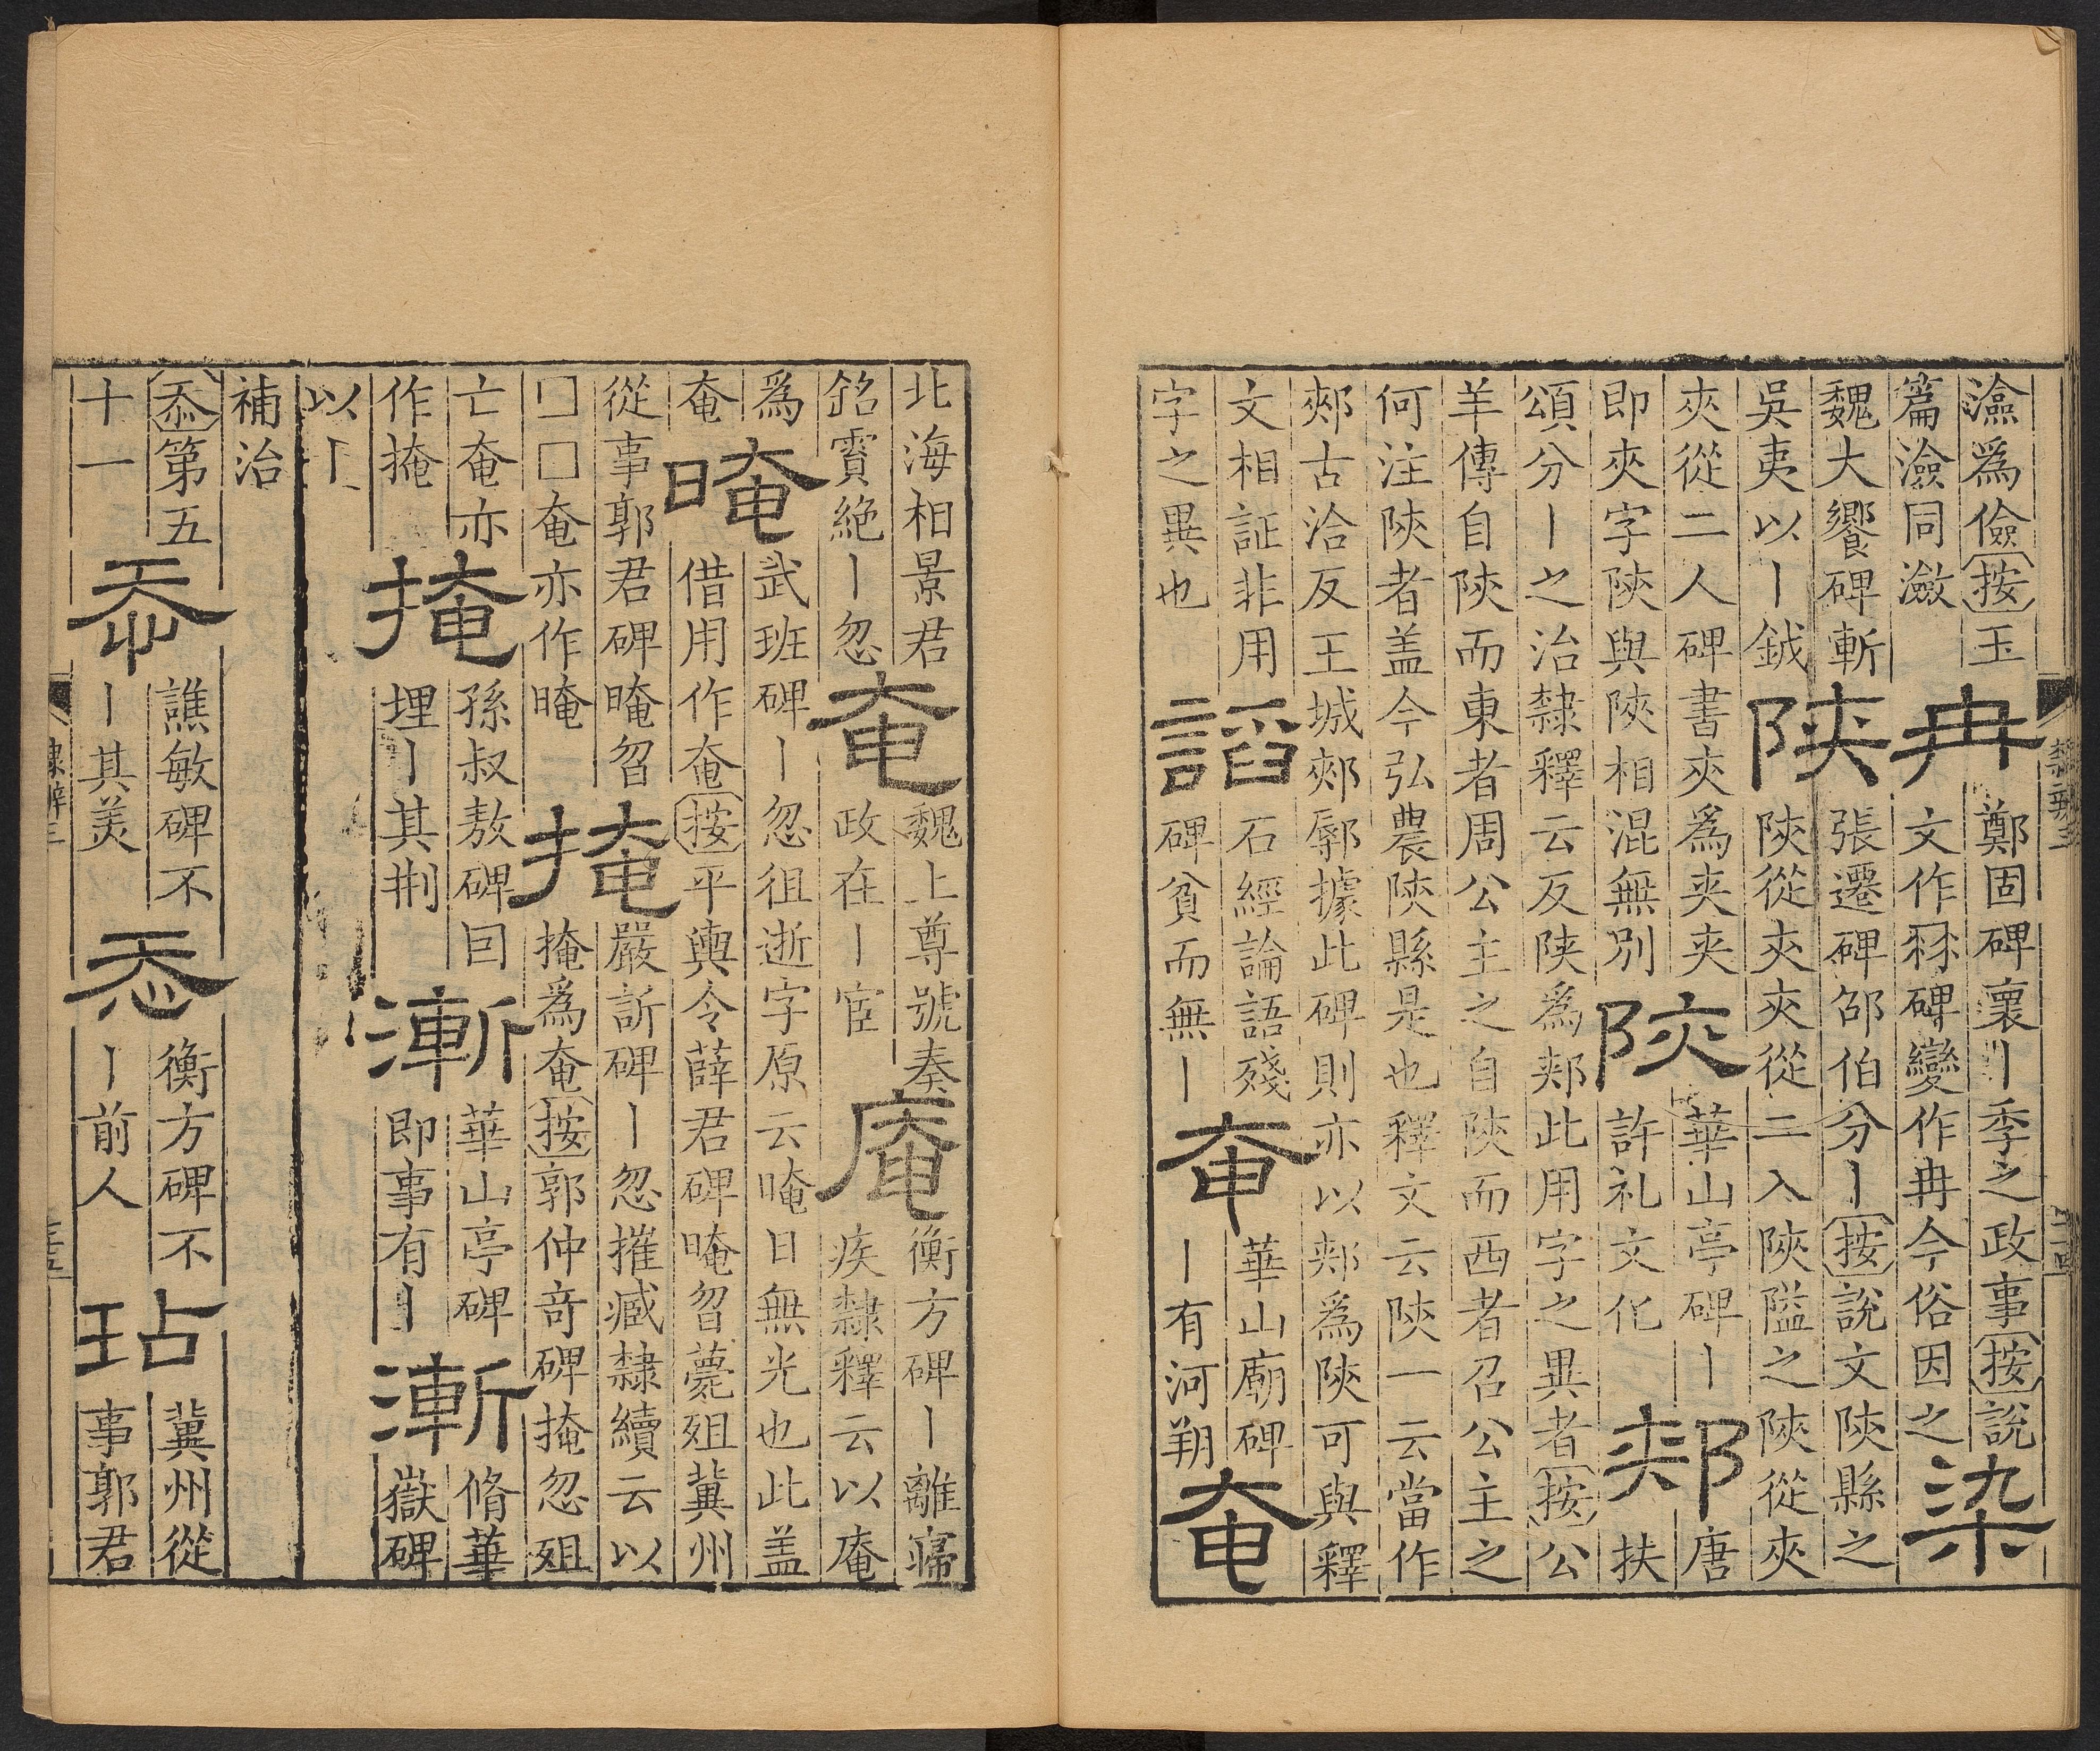 澰爲儉按玉
篇澰同瀲
冉
鄭固碑穰丨季之政事按說
文作冄碑變作冉今俗因之
染
魏大饗碑斬
吳夷以丨鉞
陝
張遷碑邵伯分丨按說文陝縣之
陝從㚒㚒從二入陝隘之陜從夾
夾從二人碑書㚒爲夹夹
即夾字陝與陜相混無別
陝
華山亭碑丨
許礼文化
郟
唐
扶
頌分丨之治隸釋云反陕爲郏此用字之異者按公
羊傳自陝而東者周公主之自陝而西者召公主之
何注陝者盖今弘農陝縣是也釋文云陝一云當作
郟古洽反王城郟鄏據此碑則亦以郏爲陝可與釋
文相証非用
字之異也
謟
石經論語殘
碑貧而無丨
奄
華山廟碑
丨有河朔
奄
隸辨三
二十四
北海相景君
銘䨮絶丨忽
奄
魏上尊號奏
政在丨宦
庵
衡方碑丨離寢
疾隸釋云以庵
爲
奄
晻
武班碑丨忽徂逝字原云晻日無光也此盖
借用作奄按平輿令薛君碑晻曶薨殂冀州
從事郭君碑晻曶
□□奄亦作晻
掩
嚴訢碑丨忽摧臧隸續云以
掩爲奄按郭仲竒碑掩忽殂
亡奄亦
作掩
掩
孫叔敖碑囙
埋丨其荆
漸
華山亭碑
即事有丨
漸
脩華
嶽碑
以丨
補治
忝第五
十一
忝
譙敏碑不
丨其美
忝
衡方碑不
丨前人
玷
冀州從
事郭君